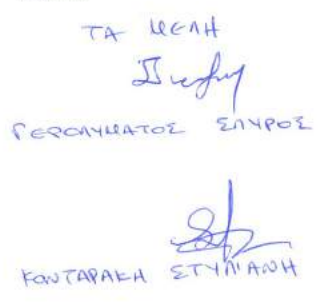 ΤΑ ΜΕΛΗ
ΓΕΡΟΛΥΜΑΤΟΣ ΣΠΥΡΟΣ
ΚΟΝΤΑΡΑΚΗ ΣΤΥΛΙΑΝΗ